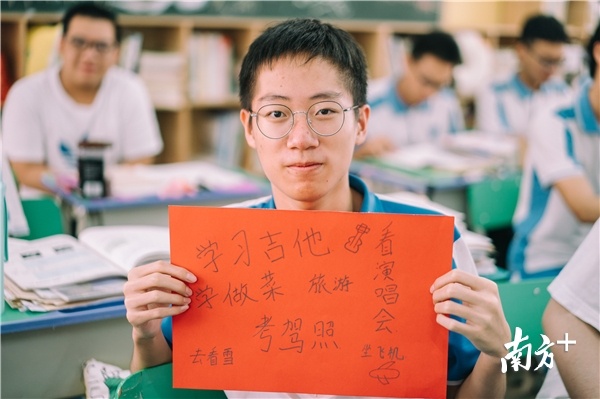 学习吉他
看演唱会
学做菜
旅游
考驾照
去看雪
坐飞机
南方+